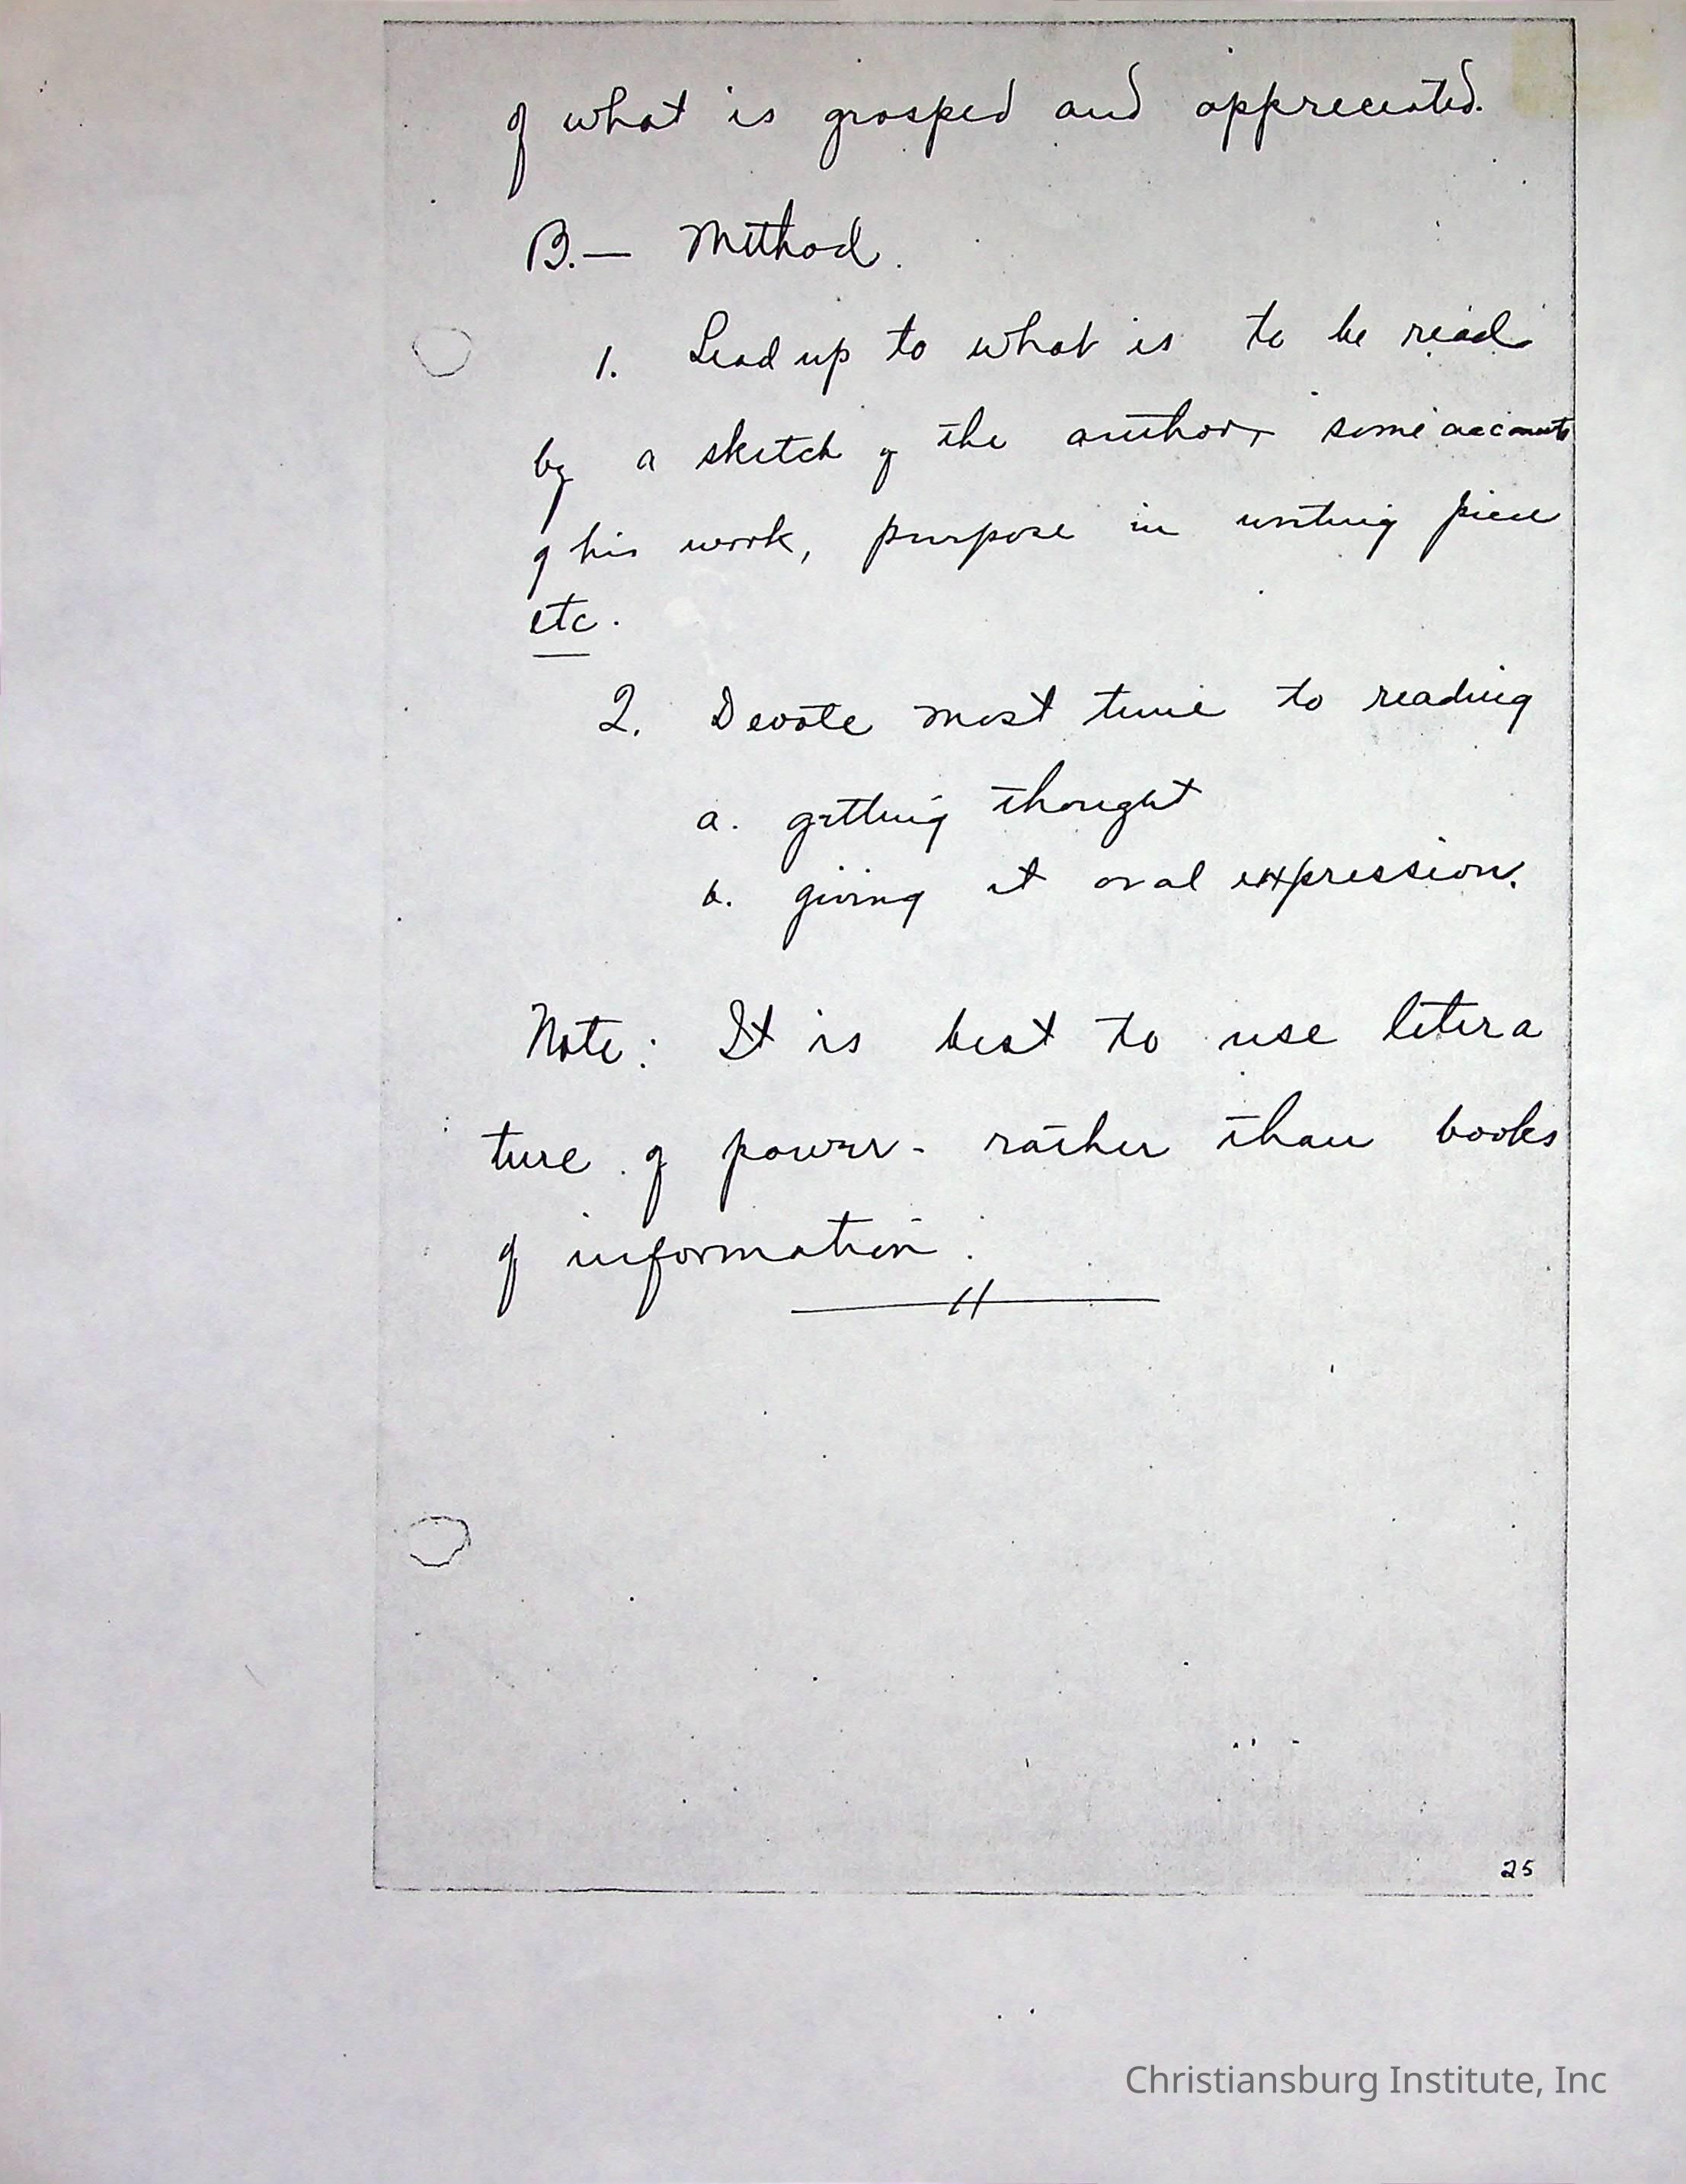 of what is grasped and appreciated.
B.— Method.
1. Lead up to what is to be read
by a sketch of the author, some accounts
of his work, purpose in writing piece
etc.
2. Devote most time to reading
a. getting thought
b. giving it oral expression.
Note: It is best to use litera
ture of power - rather than books
of information.
25
Christiansburg Institute, Inc